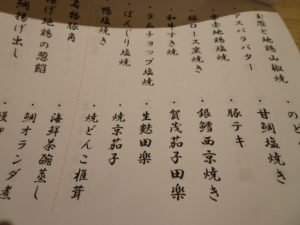 のど
・甘鯛塩焼き
・豚テキ
・銀鱈西京焼き
・賀茂茄子田楽
・生麩田楽
・焼京茄子
・焼どんこ椎茸
・海鮮茶碗蒸し
・鯛オランダ煮
玉葱と地鶏山椒焼
アスパラバター
赤地鶏塩焼
豚ロース炭焼き
和牛すき焼
・ラムチョップ塩焼
・ぼんじり塩焼
・鴨塩焼き
名物豚角
揚げ地鶏の葱餡
鯛揚げ出し